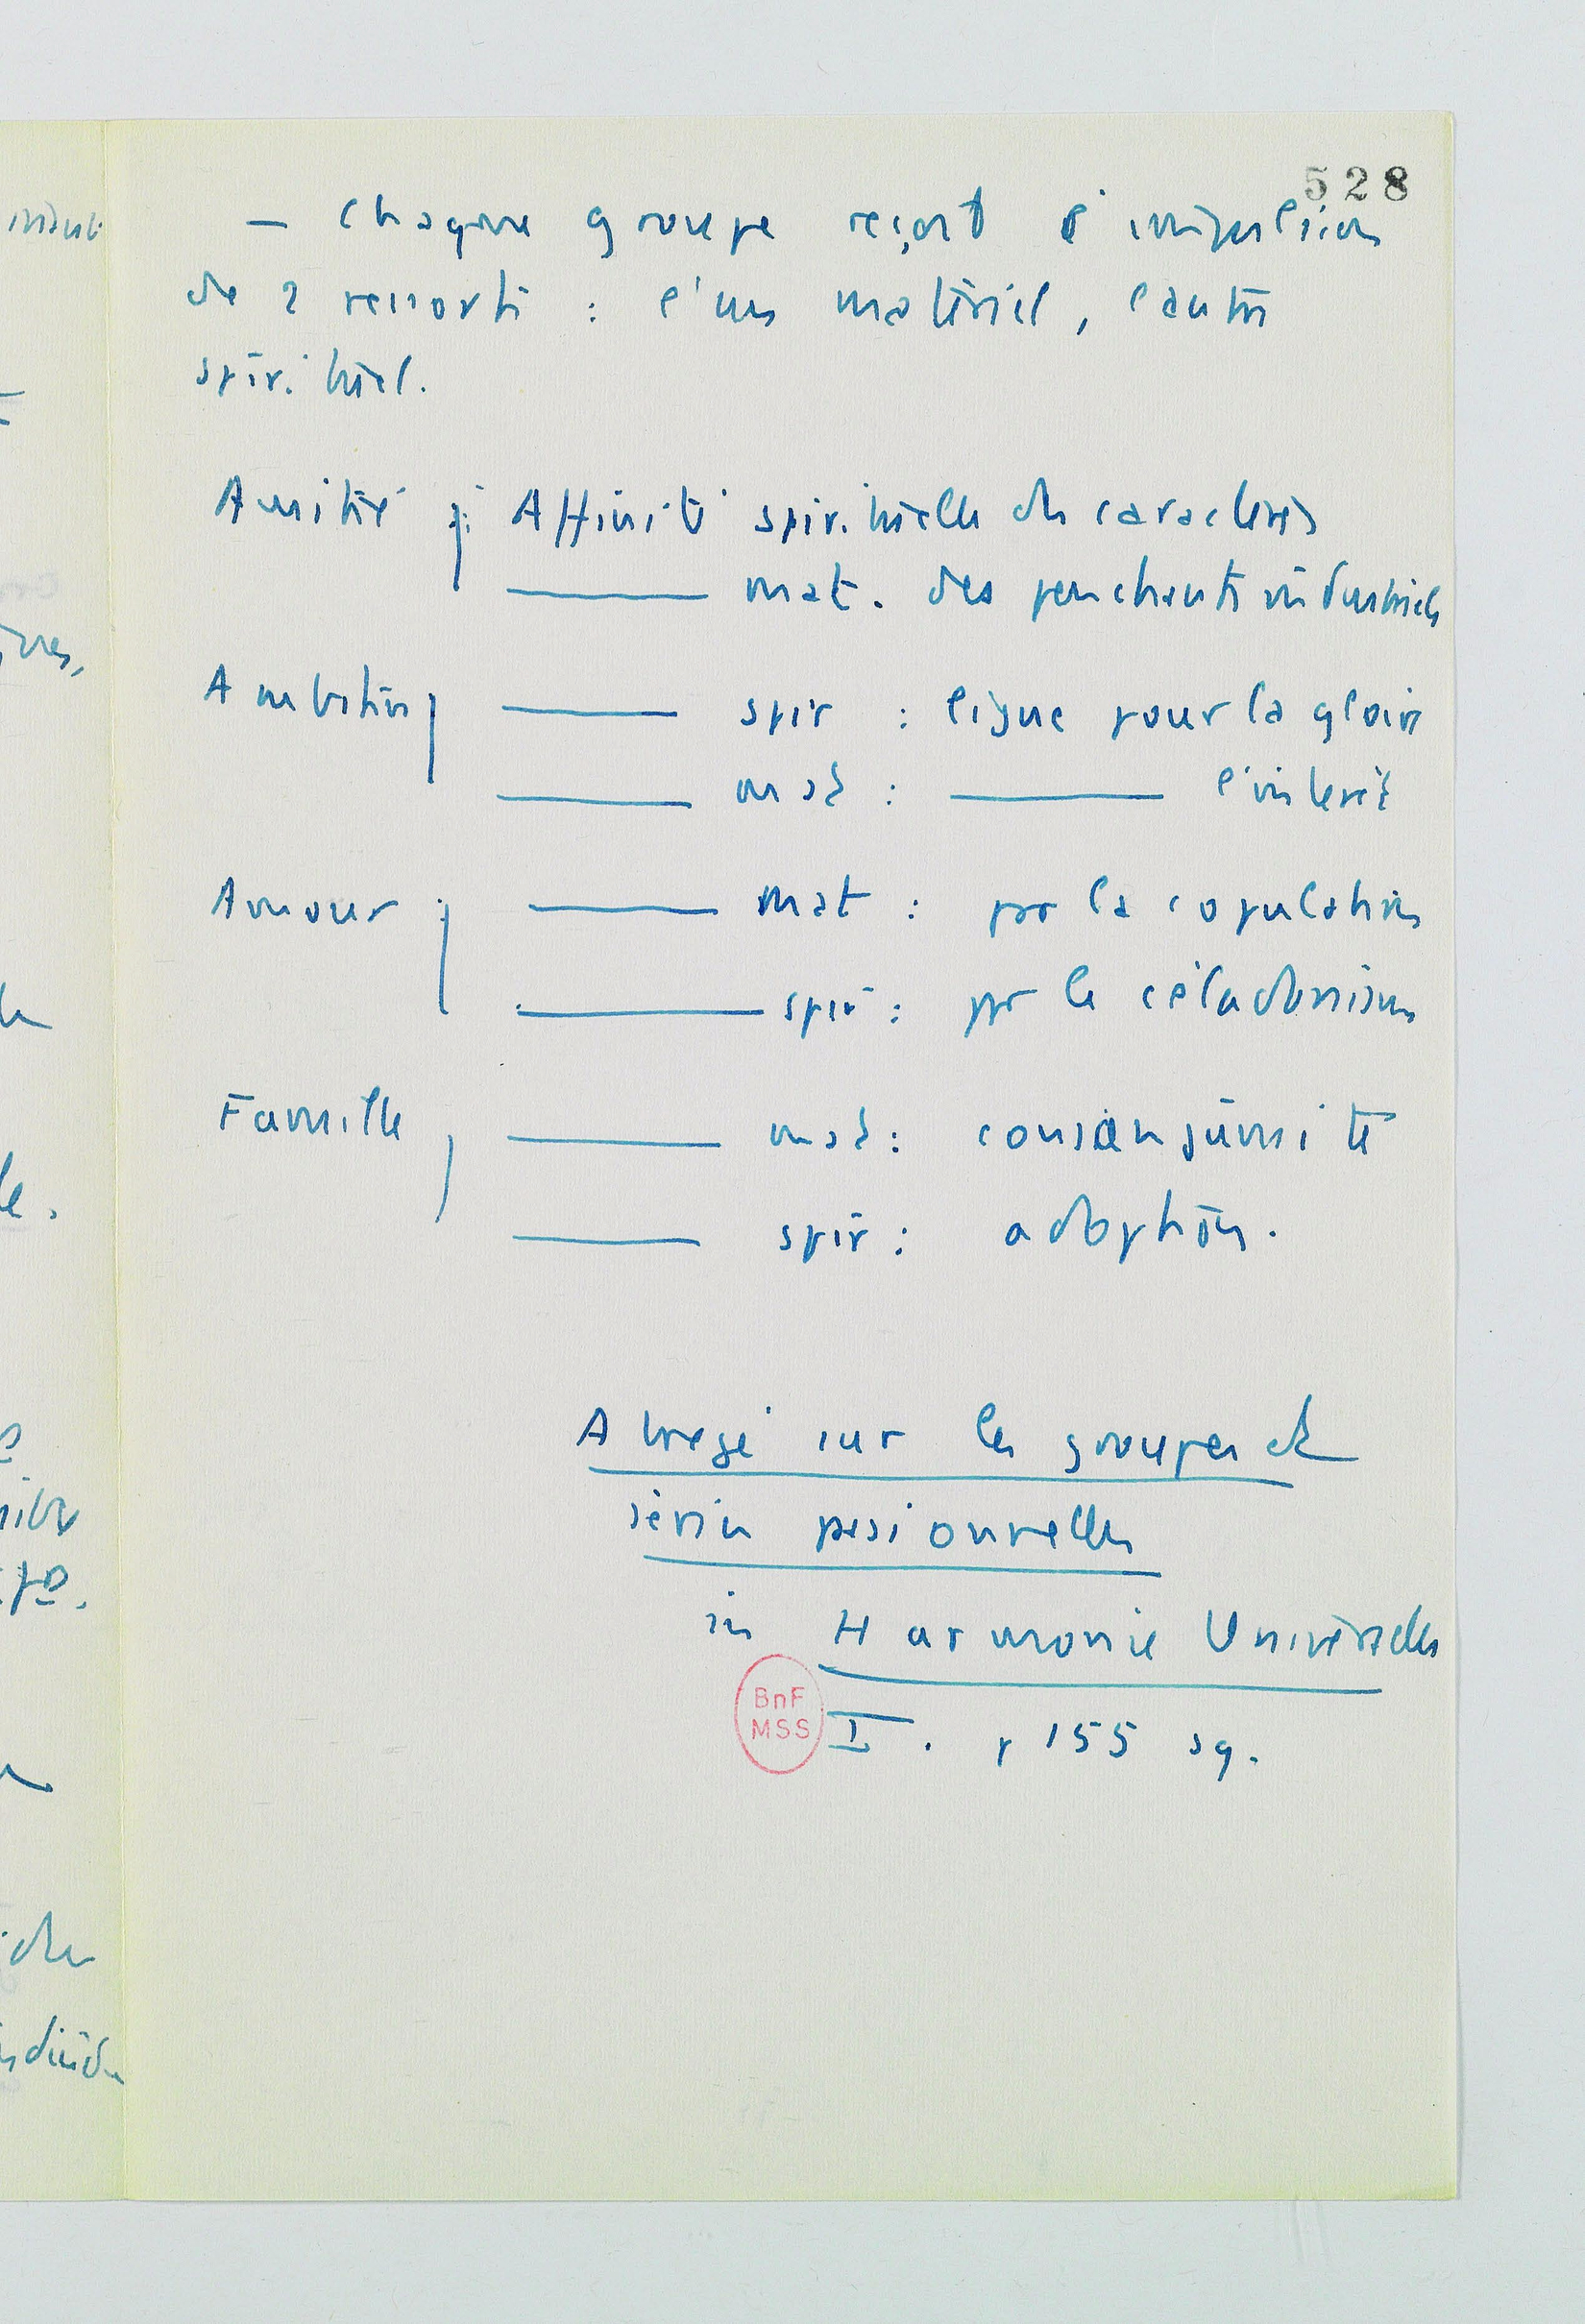 528
– Chaque groupe reçoit l'impulsion
de 2 ressorts : l'un matériel, l'autre
spirituel.
Amitié Affinité spirituelle des caractères
——— mat. des penchants industriels
Ambition ——— spir : ligue pour la gloire
——— mat : ——— l'intérêt
Amour ——— mat : par la copulation
——— spir : par le céladonisme
Famille ——— mat : consanguinité
——— spir : adoption.
Abrégé sur les groupes et
séries passionnelles
in Harmonie Universelle
I. p 155 sq.
BnF
MSS